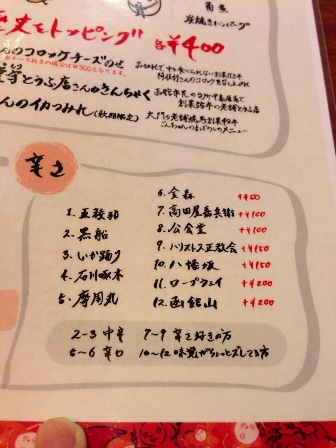 商業
炭焼きハンバーグ
歴史をトッピング 各¥400
んのコロッケチーズのせ
とうふ店さんのきんちゃく
んのイカつみれ(秋期限定)
辛さ
1. 五稜郭
2. 黒船
3. いか踊り
4. 石川啄木
5. 摩周丸
6. 金森 +¥50
7. 高田屋嘉兵衛 +¥100
8. 公会堂 +¥100
9. ハリストス正教会 +¥150
10. 八幡坂 +¥150
11. ロープウェイ +¥200
12. 函館山 +¥200
2~3 中辛
5~6 辛口
7~9 辛さ好きの方
10~12 味覚がちょっとズレてる方